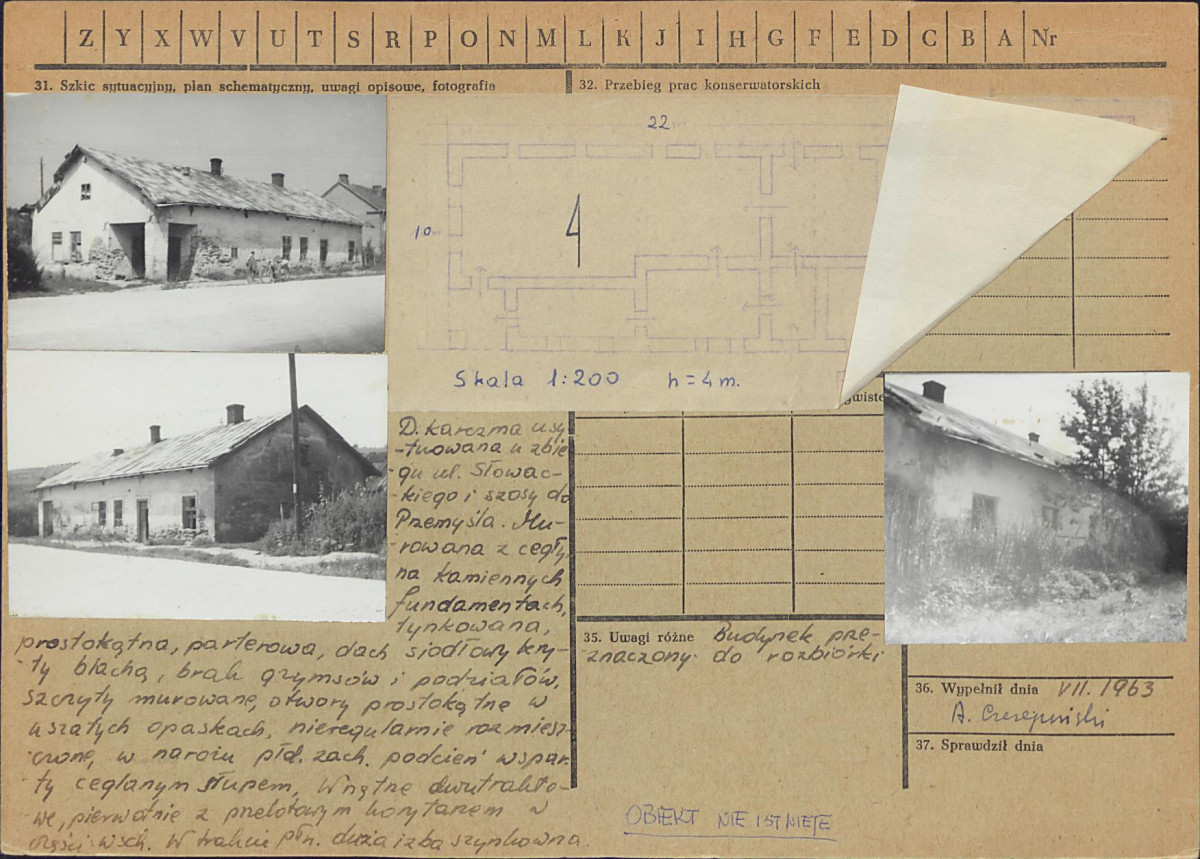 Z Y X W V U T S R P O N M L K J I H G F E D C B A Nr
31. Szkic sytuacyjny, plan schematyczny, uwagi opisowe, fotografia
32. Przebieg prac konserwatorskich
22 m
10 m
4
Skala 1:200 h = 4 m.
D. karczma usy-
-tuowana u zbie-
gu ul. Słowac-
-kiego i szosy do
Przemyśla. Mu-
-rowana z cegły
na kamiennych
fundamentach,
tynkowana,
prostokątna, parterowa, dach siodłowy kry-
-ty blachą, brak gzymsów i podziałów,
szczyty murowane, otwory prostokątne w
uszatych opaskach, nieregularnie rozmiesz-
czone, w narożu płd. zach. podcień wspar-
ty ceglanym słupem, Wnętrze dwutrakto-
we, pierwotnie z przelotowym korytarzem w
części wsch. W trakcie płn. duża izba szynkowna.
35. Uwagi różne Budynek prze-
-znaczony do rozbiórki
36. Wypełnił dnia VII. 1963
A.
37. Sprawdził dnia
OBIEKT NIE ISTNIEJE